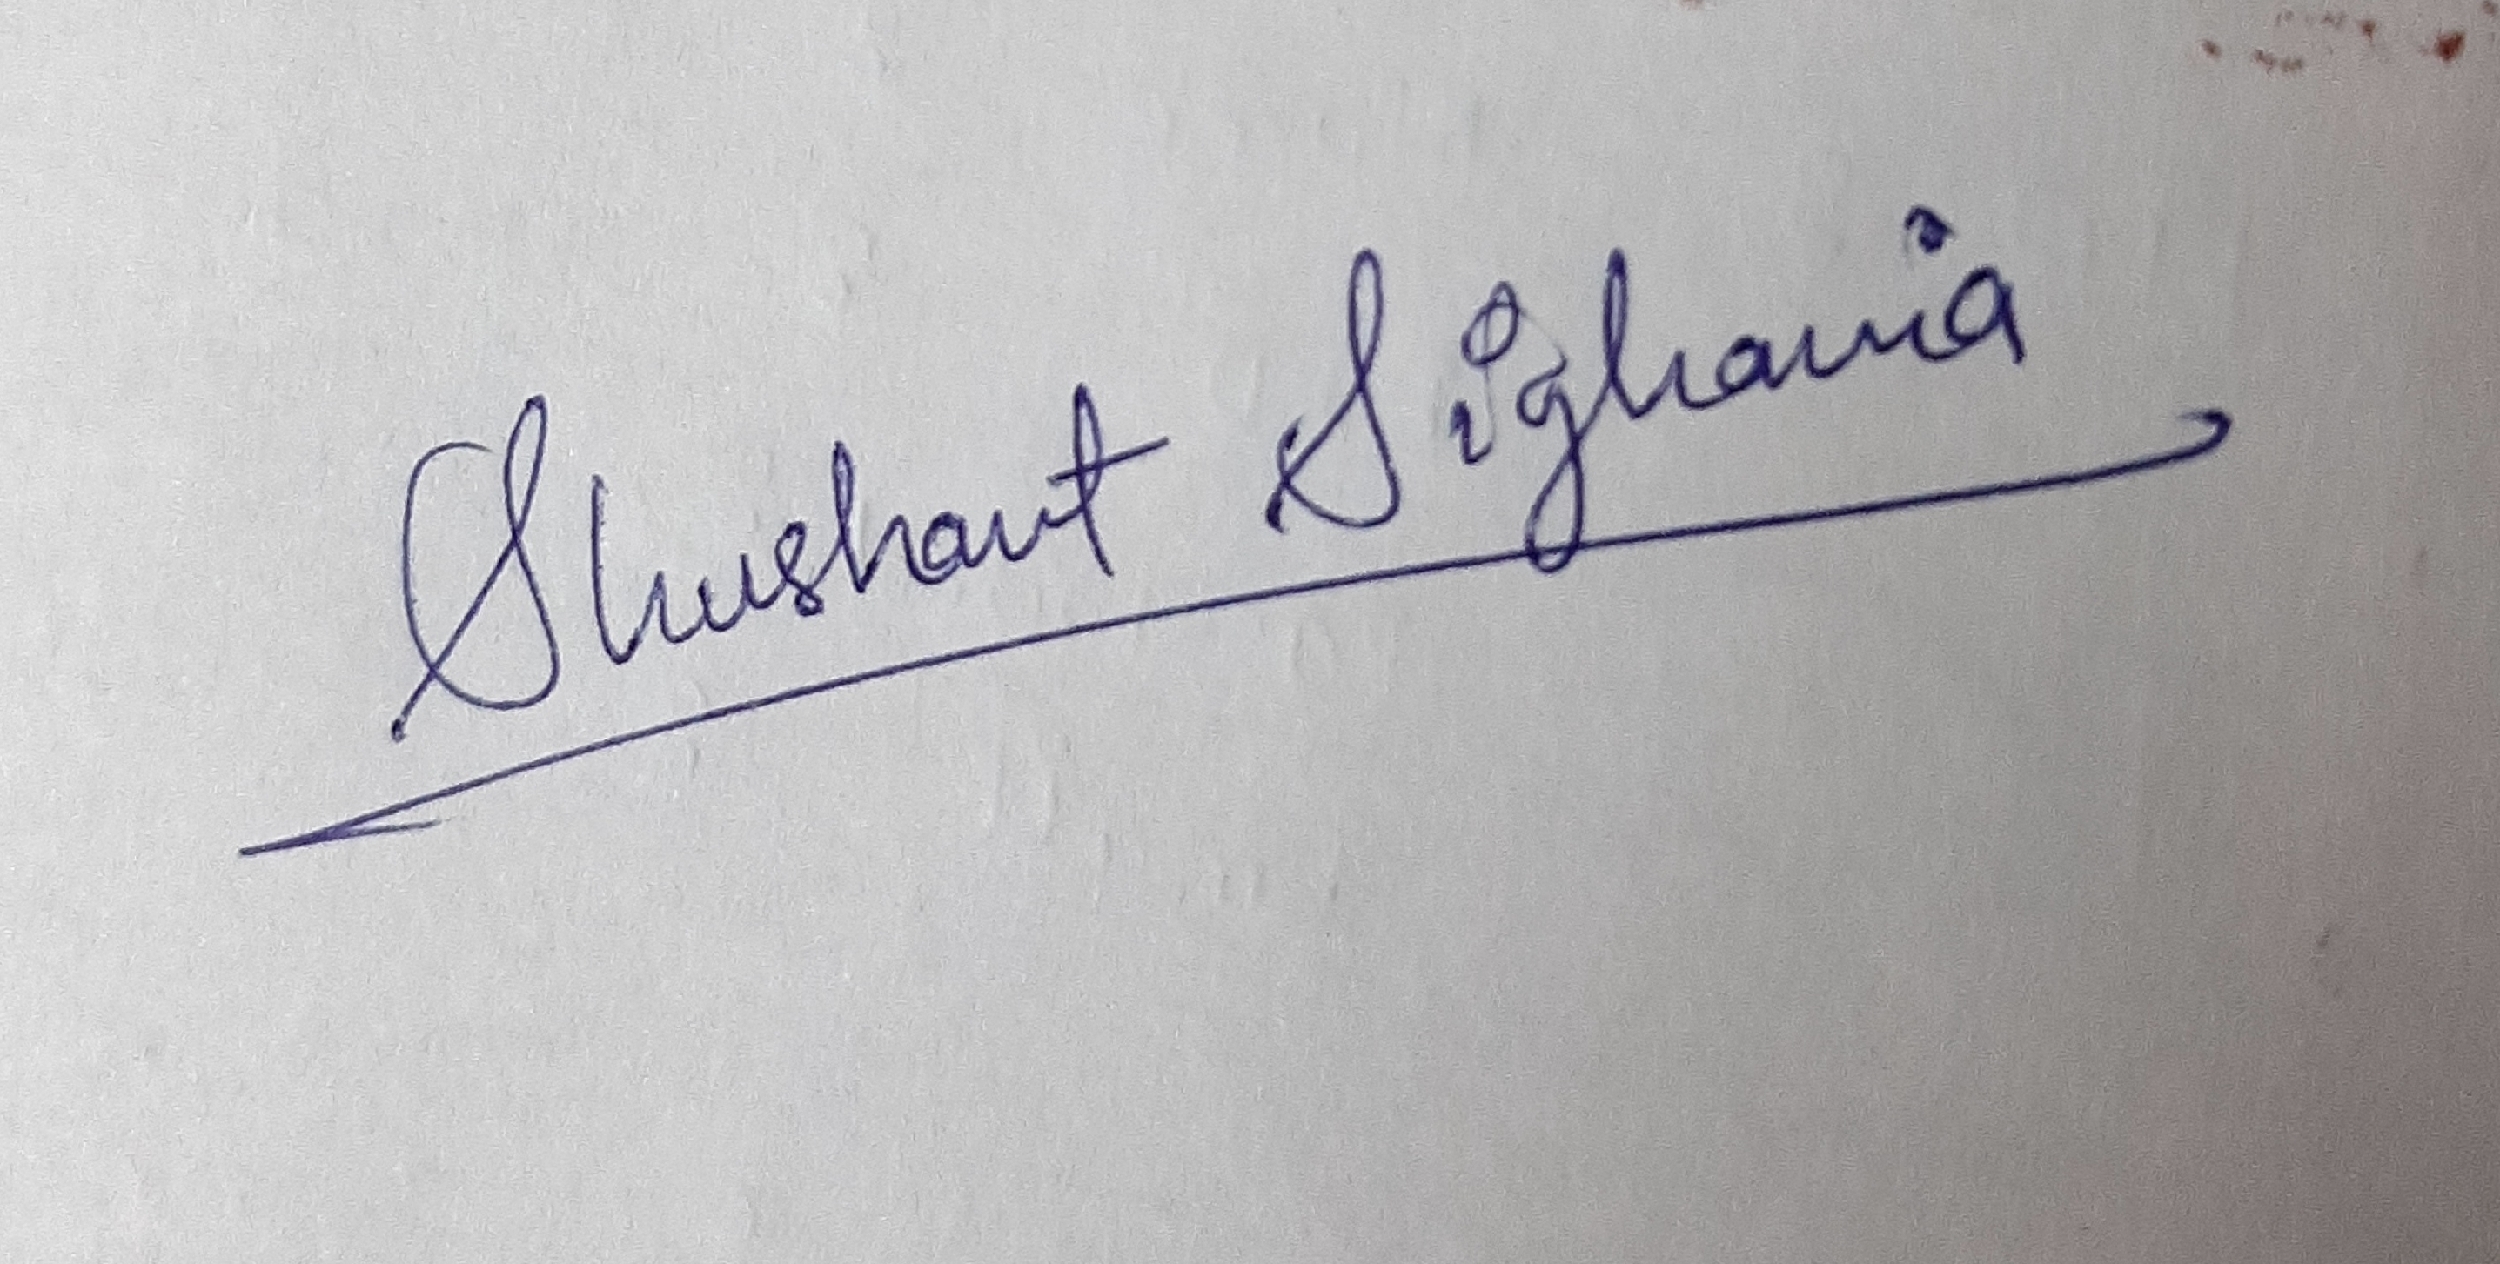 Shushant Sighania